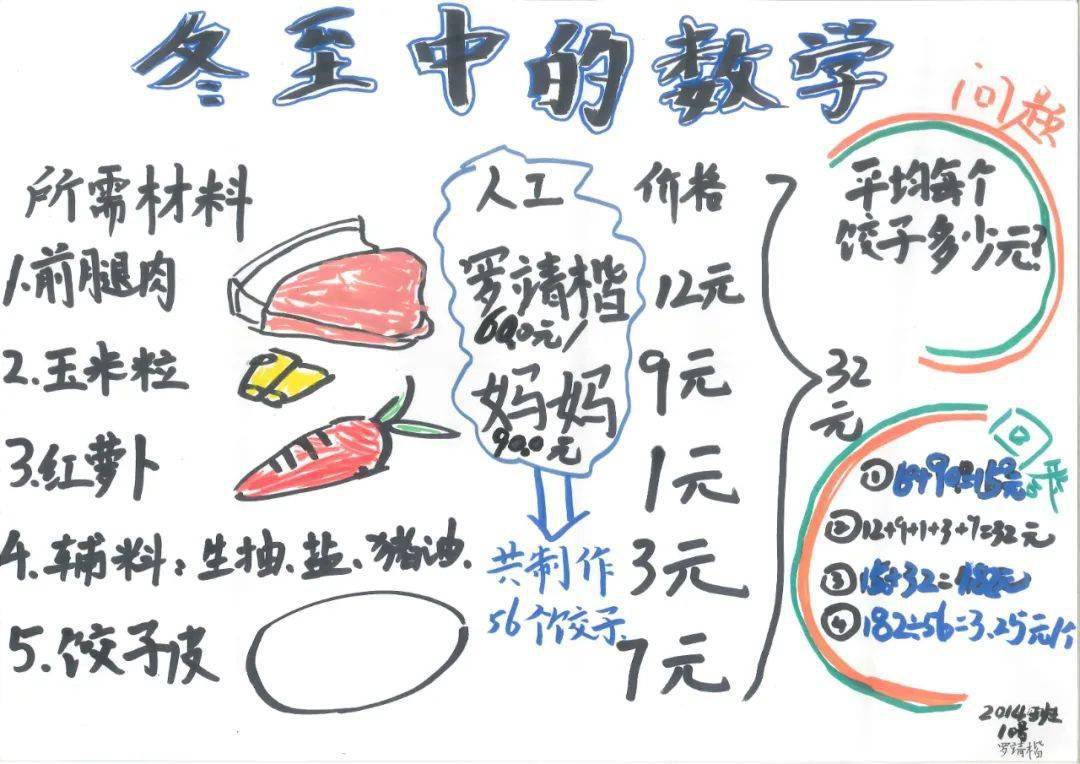 冬至中的数学
所需材料
1.前腿肉
2.玉米粒
3.红萝卜
4.辅料：生抽、盐、猪油.
5.饺子皮
人工
罗靖楷
60.0元/
妈妈
90.0元
共制作
56个饺子.
价格
12元
9元
1元
3元
7元
32
元
问题
平均每个
饺子多少元?
回答
②12+9+1+3+7=32元
④182÷56=3.25元/个
2014班
10号
罗靖楷